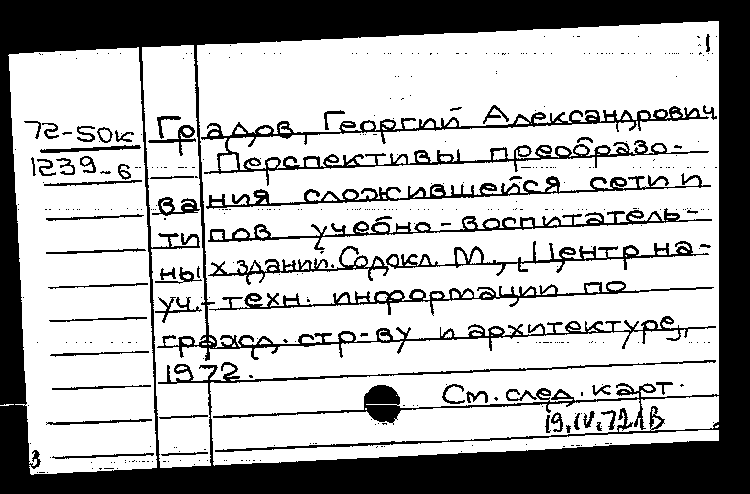 1
72-50к
1239-6
Градов, Георгий Александрович
Перспективы преобразо-
вания сложившейся сети и
типов учебно-воспитатель-
ных зданий. Содокл. М., [Центр на-
уч.-техн. информации по
гражд. стр-ву и архитектуре],
1972.
См. след. карт.
19.IV.72
3